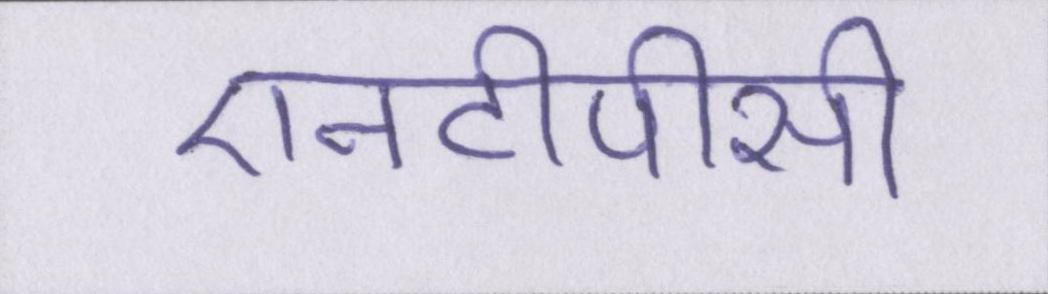 एनटीपीसी